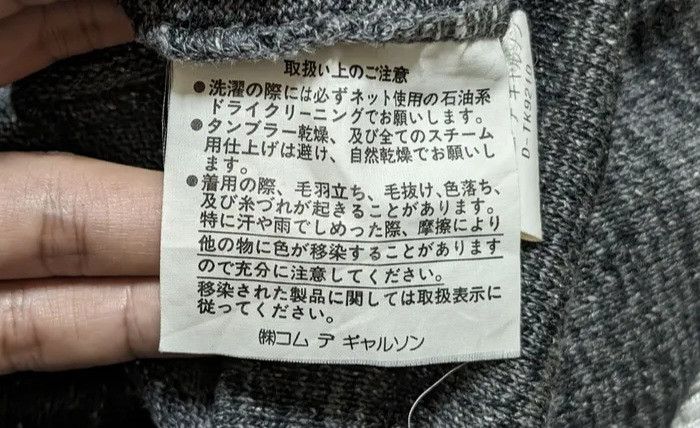 取扱い上のご注意
●洗濯の際には必ずネット使用の石油系
ドライクリーニングでお願いします。
●タンブラー乾燥、及び全てのスチーム
用仕上げは避け、自然乾燥でお願いし
ます。
●着用の際、毛羽立ち、毛抜け、色落ち、
及び糸づれが起きることがあります。
特に汗や雨でしめった際、摩擦により
他の物に色が移染することがあります
ので充分に注意してください。
移染された製品に関しては取扱表示に
従ってください。
㈱コム デ ギャルソン
デ ギャルソン
D-TK9210